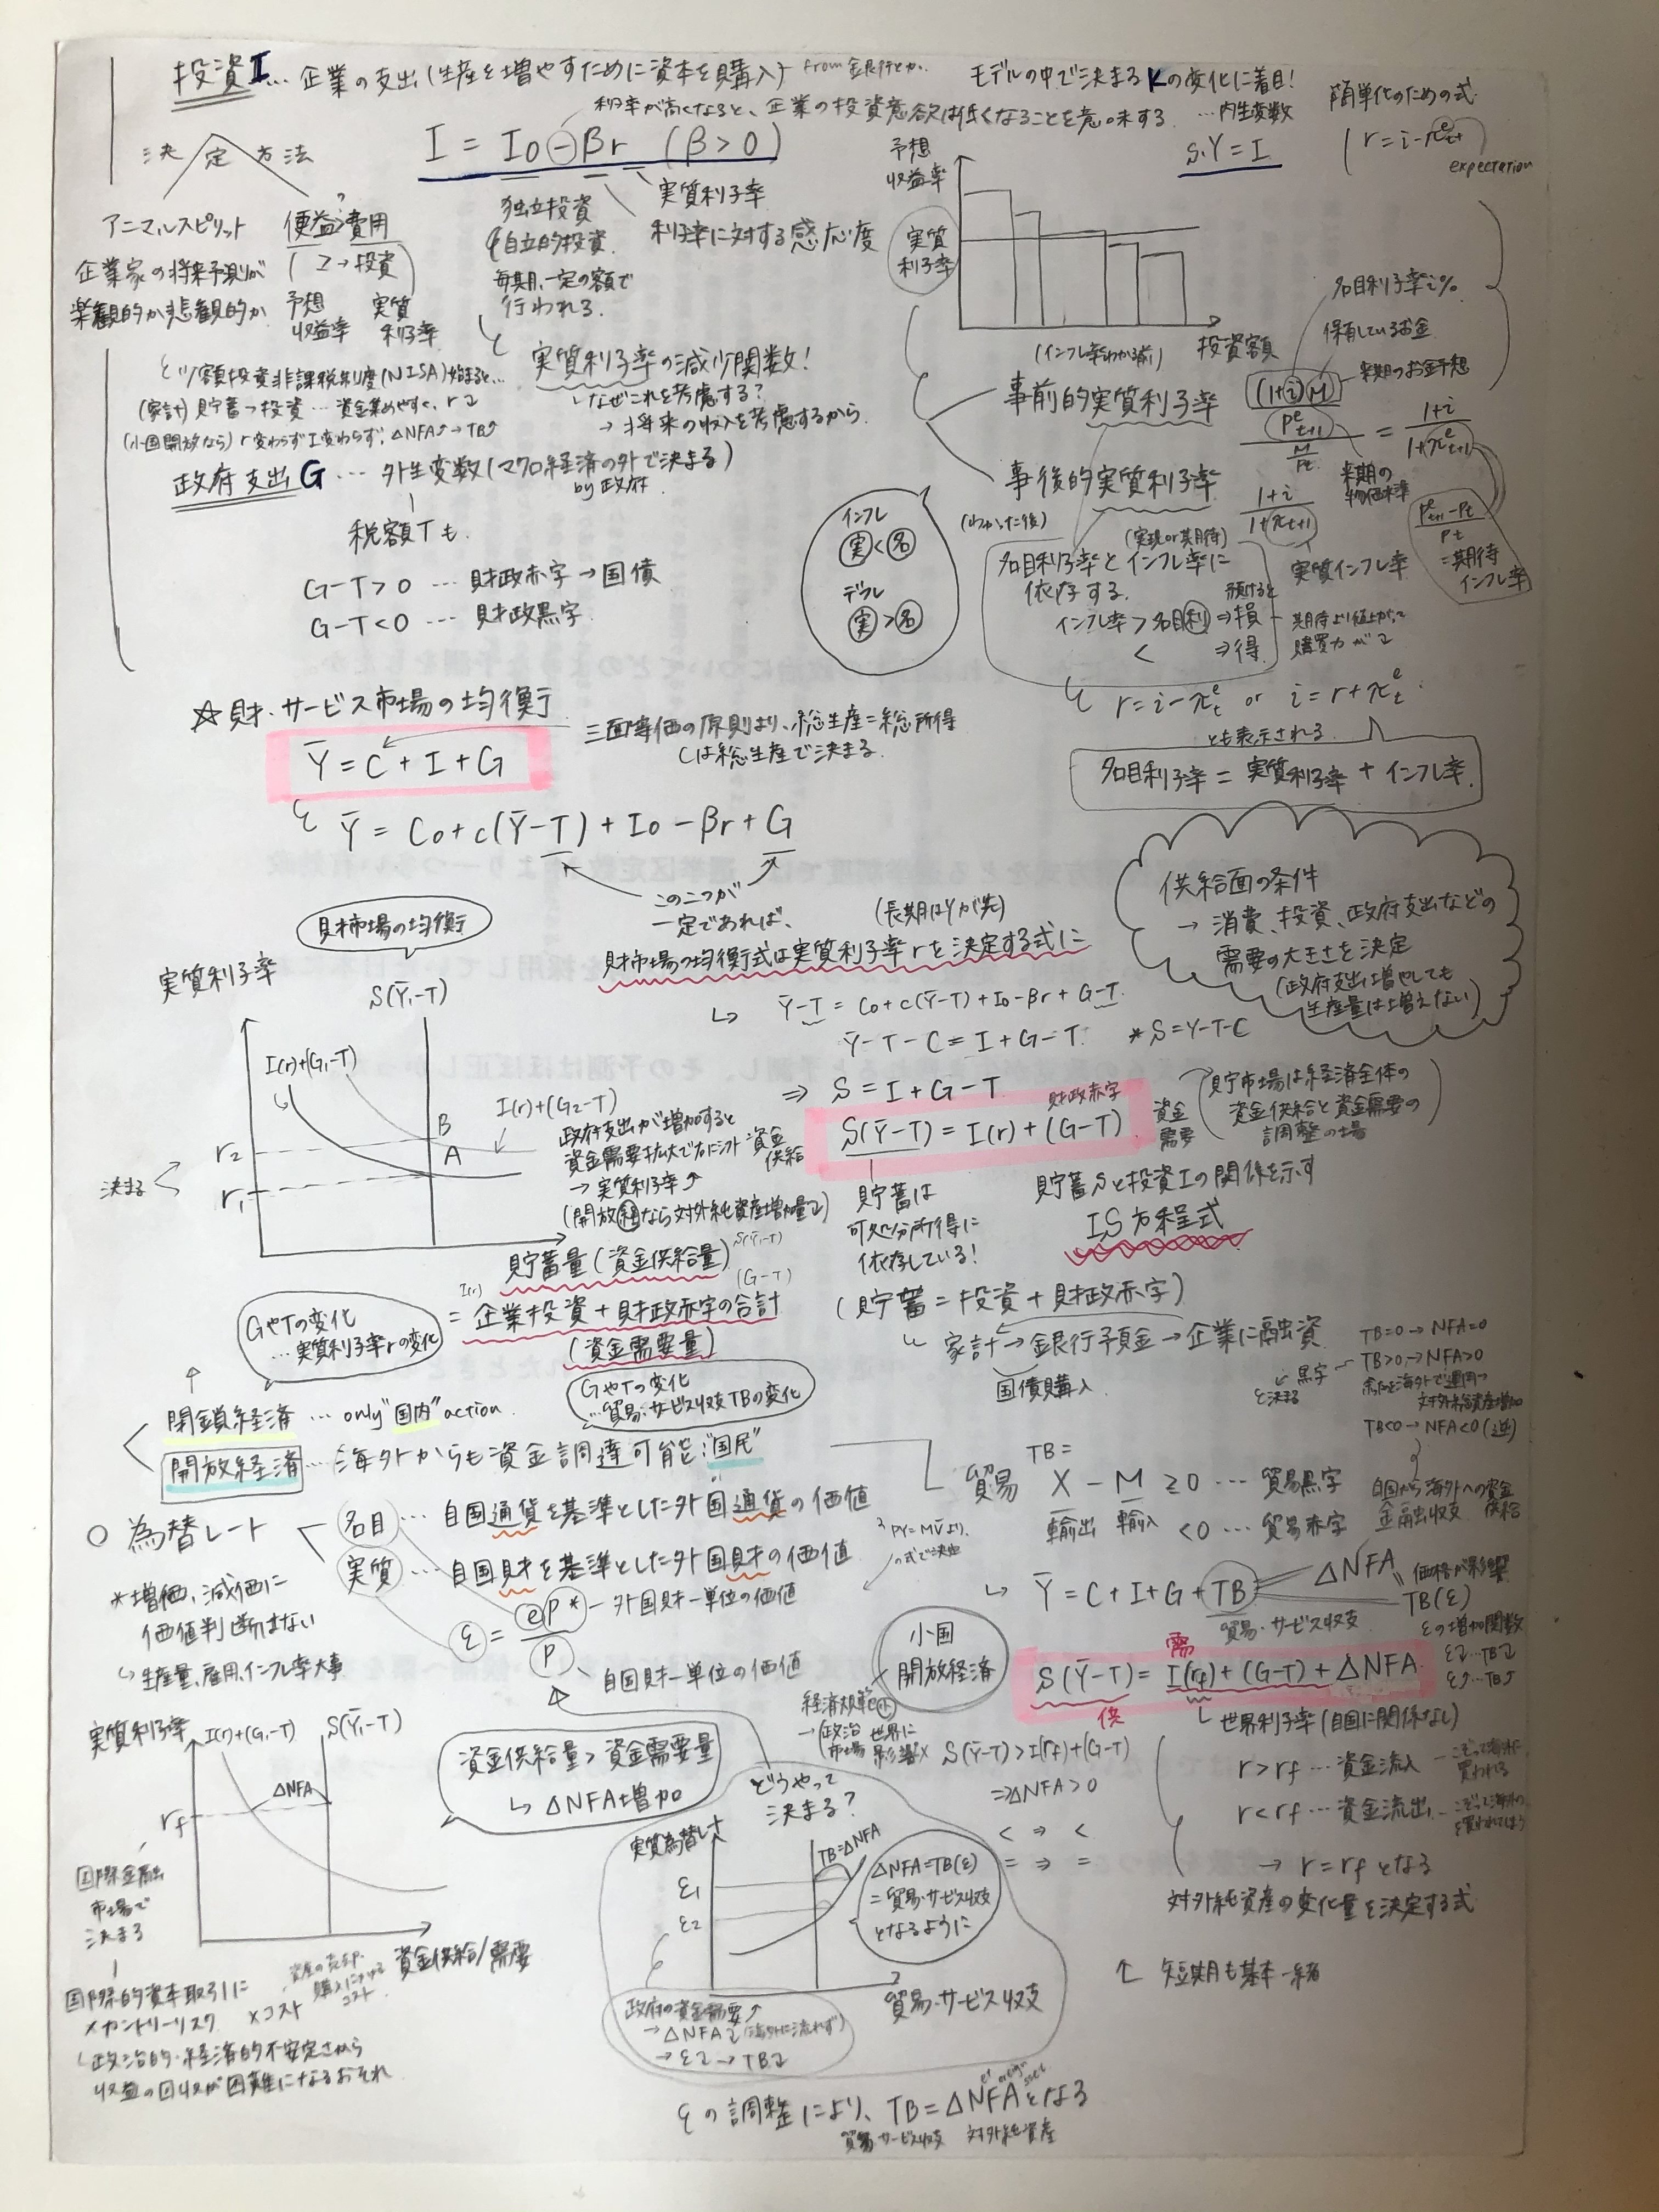 投資I… 企業の支出(生産を増やすために資本を購入) from 銀行とか..
利子率が高くなると、企業の投資意欲は低くなることを意味する
I = I0 − βr (β>0)
決定方法
アニマルスピリット
企業家の将来予測が
楽観的か悲観的か
便益>費用
?
→投資
予想
収益率
実質
利子率
独立投資
自立的投資
毎期、一定の額で
行われる.
実質利子率
利子率に対する感応度
実質利子率の減少関数!
なぜこれを考慮する?
→将来の収入を考慮するから
少額投資非課税制度(NISA)始まると…
(家計)貯蓄→投資…資金集めやすく、r↓
(小国開放なら) r変わらずI変わらず, △NFA↑→TB↑
モデルの中で決まるKの変化に着目!
…内生変数
s.Y=I
簡単化のための式
r=i−πᵉt+1
expectation
予想
収益率
実質
利子率
投資額
(インフレ率わかる前)
事前的実質利子率
名目利子率i%
保有しているお金
来期のお金予想
(1+i)M
Pᵉt+1
M
Pt
= 1+i
1+πᵉt+1
来期の
物価水準
Pᵉt+1−Pt
Pt
=期待
インフレ率
事後的実質利子率
(わかった後)
1+i
1+πt+1
実質インフレ率
(実現or期待)
名目利子率とインフレ率に
依存する.
インフレ率>名目利 ⇒損
預けると
< ⇒得
期待より値上がって
購買力が↓
インフレ
実<名
デフレ
実>名
r=i−πᵉt or i=r+πᵉt
とも表示される
名目利子率=実質利子率+インフレ率.
政府支出G … 外生変数(マクロ経済の外で決まる)
by政府.
税額Tも.
G−T>0 … 財政赤字→国債
G−T<0 … 財政黒字
☆財・サービス市場の均衡
三面等価の原則より、総生産=総所得
Cは総生産で決まる.
Ȳ=C+I+G
Ȳ=C0+c(Ȳ−T)+I0−βr+G
この二つが
一定であれば、
(長期はYが先)
財市場の均衡式は実質利子率rを決定する式に
供給面の条件
→消費、投資、政府支出などの
需要の大きさを決定
(政府支出増やしても
生産量は増えない)
Ȳ−T=C0+c(Ȳ−T)+I0−βr+G−T
Ȳ−T−C=I+G−T *S=Y−T−C
⇒ S=I+G−T
財政赤字
S(Ȳ−T)=I(r)+(G−T)
資金
供給
資金
需要
貯市場は経済全体の
資金供給と資金需要の
調整の場
貯蓄は
可処分所得に
依存している!
貯蓄Sと投資Iの関係を示す
IS方程式
(貯蓄=投資+財政赤字)
家計→銀行預金→企業に融資
国債購入
財市場の均衡
実質利子率
S(Ȳ1−T)
I(r)+(G1−T)
I(r)+(G2−T)
B
A
r2
r1
決まる
政府支出が増加すると
資金需要拡大で右にシフト
→実質利子率↑
(開放経なら対外純資産増加量↓)
貯蓄量(資金供給量) S(Ȳ1−T)
I(r) (G−T)
=企業投資+財政赤字の合計
(資金需要量)
GやTの変化
…実質利子率rの変化
GやTの変化
…貿易・サービス収支TBの変化
閉鎖経済 … only"国内"action.
開放経済 … 海外からも資金調達可能を:"国民"
TB=0→NFA=0
黒字 TB>0→NFA>0
余りを海外で運用→
対外純資産増加
TB<0→NFA<0(逆)
を決める
TB=
貿易 X−M ≧0 … 貿易黒字
輸出 輸入 <0 … 貿易赤字
自国から海外への資金
供給
金融収支
Ȳ=C+I+G+TB
貿易・サービス収支
△NFA
価格が影響
TB(ε)
εの増加関数
ε↓…TB↓
ε↑…TB↑
○為替レート
名目 … 自国通貨を基準とした外国通貨の価値
実質 … 自国財を基準とした外国財の価値
PY=MVより
の式で決定
*増価、減価に
価値判断はない
↳生産量、雇用、インフレ率大事
ε= eP*
P
外国財一単位の価値
自国財一単位の価値
小国
開放経済
経済規模 小
→政治
市場
世界に
影響×
需
S(Ȳ−T)=I(rf)+(G−T)+△NFA
供
世界利子率(自国に関係なし)
S(Ȳ−T)>I(rf)+(G−T)
⇒△NFA>0
< ⇒ <
= ⇒ =
r>rf … 資金流入
r<rf … 資金流出
→ r=rfとなる
対外純資産の変化量を決定する式
↑ 短期も基本一緒
実質利子率
I(r)+(G1−T)
S(Ȳ1−T)
△NFA
rf
国際金融
市場で
決まる
資金供給/需要
資金供給量>資金需要量
↳△NFA増加
国際的資本取引に
×カントリーリスク ×コスト
↳政治的・経済的不安定さから
収益の回収が困難になるおそれ
どうやって
決まる?
実質為替レート
TB=△NFA
ε1
ε2
△NFA=TB(ε)
=貿易・サービス収支
となるように
貿易・サービス収支
政府の資金需要↑
→△NFA↓(海外に流れず)
→ε↓→TB↓
εの調整により、TB=△NFAとなる
貿易・サービス収支 対外純資産